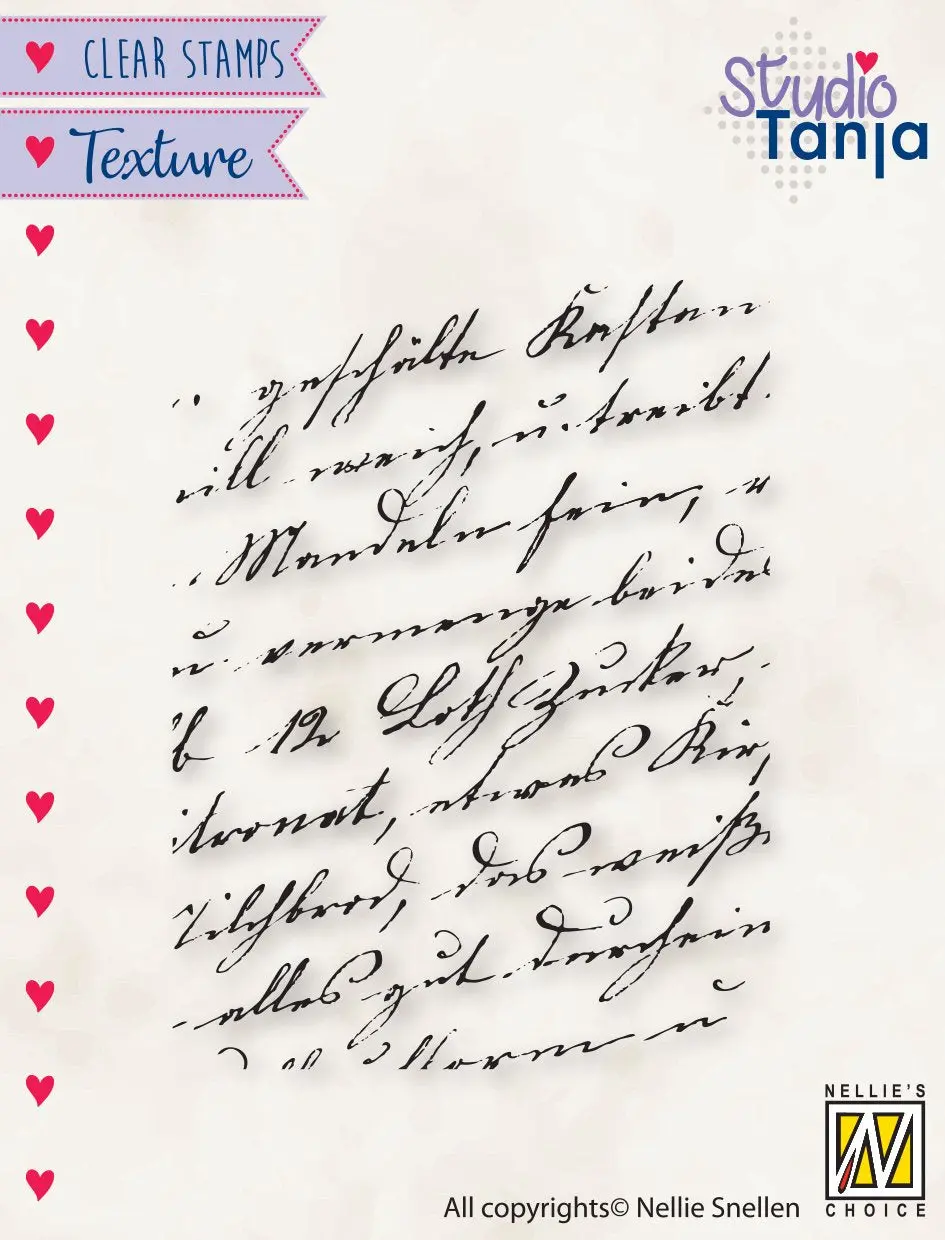 CLEAR STAMPS
Texture
Studio
Tanja
geschälte Kastan
weich, u. treibt
Mandeln fein, u
u. vermenge beides
12 Loth Zucker,
itronat, etwas Kir,
Milchbrod, das weiß
alles gut durchein
u
NELLIE'S
CHOICE
All copyrights© Nellie Snellen